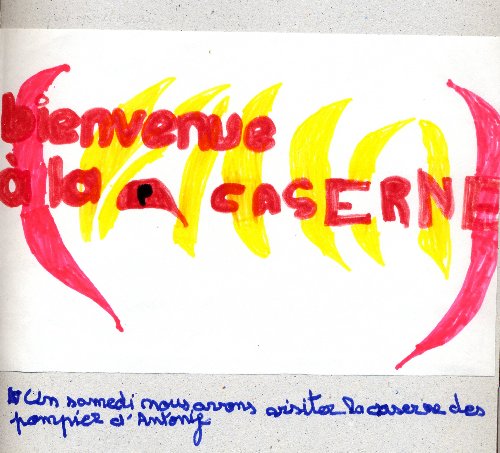 bienvenue
à la CASERNE
Un samedi nous avons visiter la caserne des
pompier d'Antony